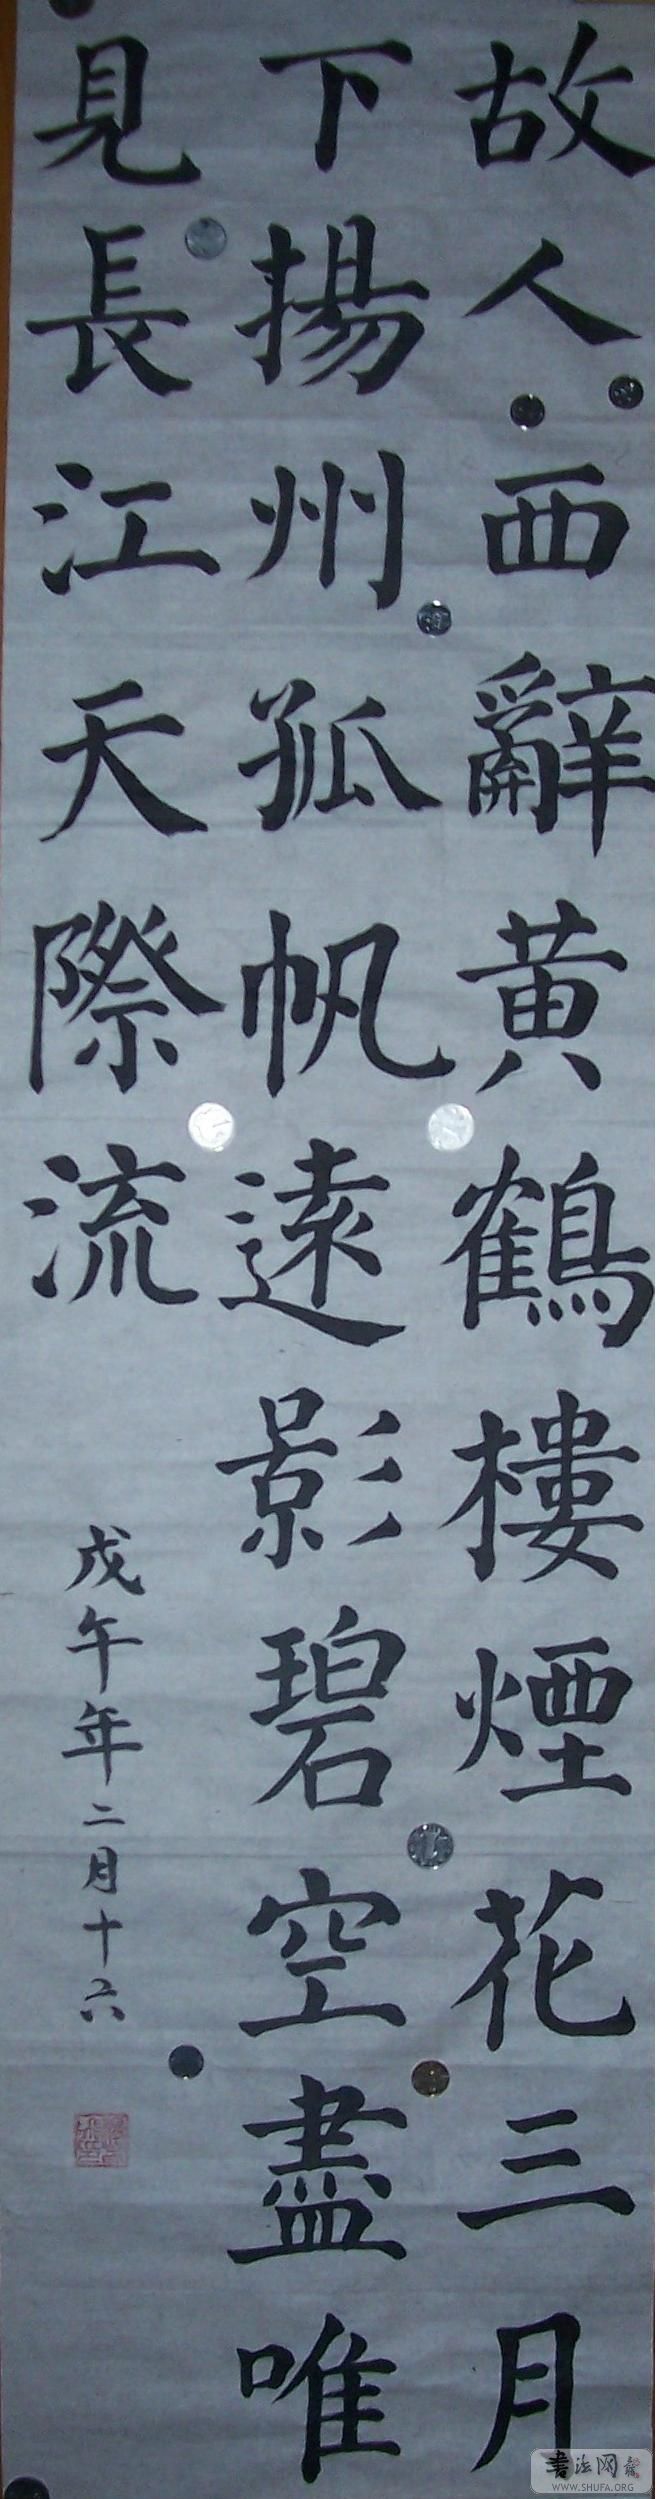 故人西辭黄鶴樓煙花三月
下揚州孤帆逺影碧空盡唯
見長江天際流
戊午年二月十六
書法网
WWW.SHUFA.ORG